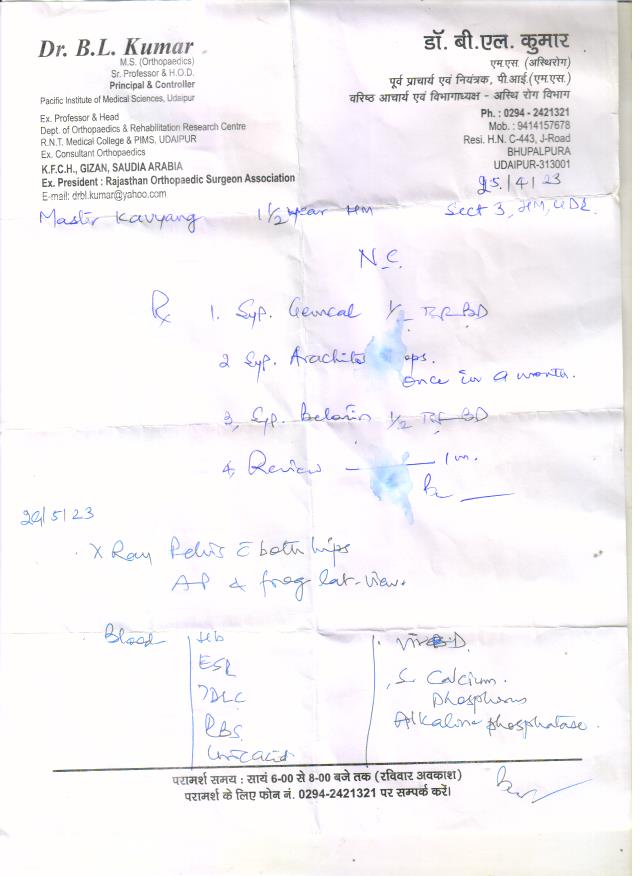 Dr. B.L. Kumar
M.S. (Orthopaedics)
Sr. Professor & H.O.D.
Principal & Controller
Pacific Institute of Medical Sciences, Udaipur
Ex. Professor & Head
Dept. of Orthopaedics & Rehabilitation Research Centre
R.N.T. Medical College & PIMS, UDAIPUR
Ex. Consultant Orthopaedics
K.F.C.H., GIZAN, SAUDIA ARABIA
Ex. President : Rajasthan Orthopaedic Surgeon Association
E-mail: drbl.kumar@yahoo.com
डॉ. बी.एल. कुमार
एम.एस. (अस्थिरोग)
पूर्व प्राचार्य एवं नियंत्रक, पी.आई.(एम.एस.)
वरिष्ठ आचार्य एवं विभागाध्यक्ष - अस्थि रोग विभाग
Ph. : 0294 - 2421321
Mob. : 9414157678
Resi. H.N. C-443, J-Road
BHUPALPURA
UDAIPUR-313001
25/4/23
Master Kavyang 1 1/2 year HM Sect 3, HM, UDR.
N.C.
Rx 1. Syp. Gemcal 1/2 BD
2 Syp. Arachitol
once in a month.
3, Syp. 1/2 BD
4, Review — 1 m.
/5/23
X Ray Pelvis c both hips
AP & frog lat-view.
Blood Hb
ESR
TDLC
RBS
Uric acid
S. Calcium.
phosphorus
Alkaline phosphatase.
परामर्श समय : सायं 6-00 से 8-00 बजे तक (रविवार अवकाश)
परामर्श के लिए फोन नं. 0294-2421321 पर सम्पर्क करें।